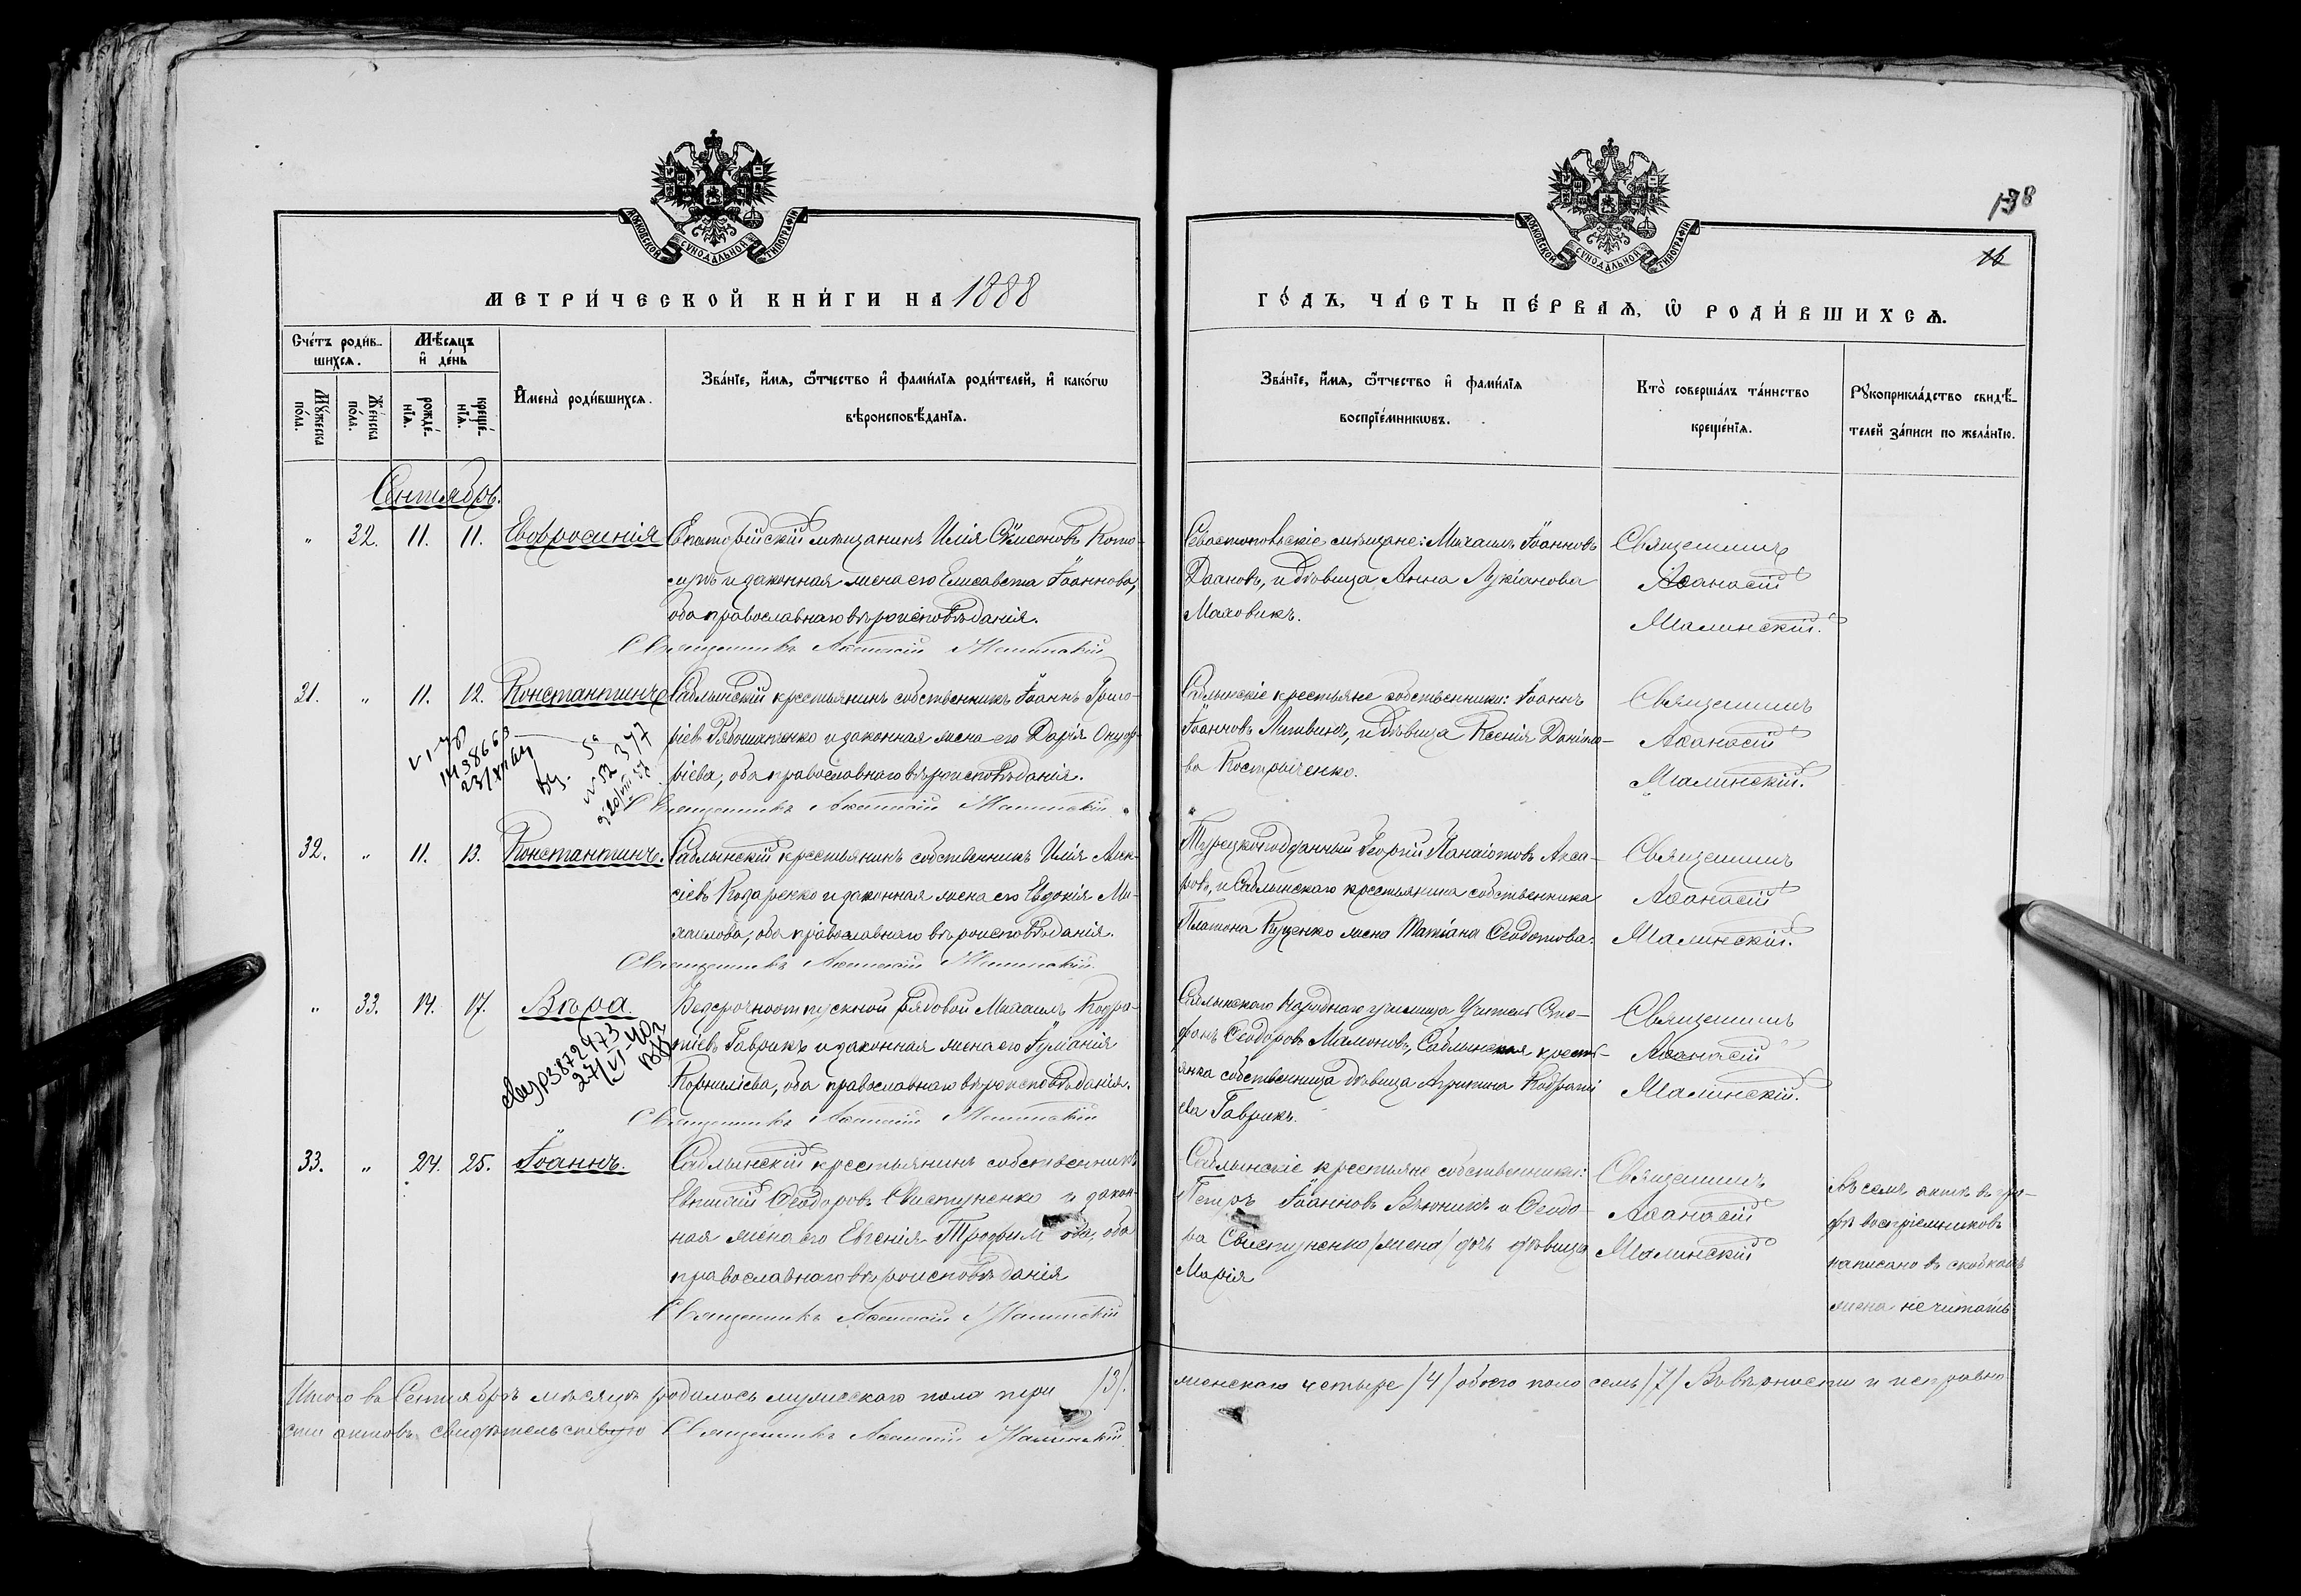 138
16
МОСКОВСКОЙ СѴНОДАЛЬНОЙ ТИПОГРАФІИ
МОСКОВСКОЙ СѴНОДАЛЬНОЙ ТИПОГРАФІИ
МЕТРИ́ЧЕСКОЙ КНИ́ГИ НА 1888
ГО́ДЪ, ЧА́СТЬ ПЕ́РВАѦ, Ѡ҆ РОДИ́ВШИХСѦ.
Сче́тъ роди́в-
шихсѧ.
Мѣ́сѧцъ
и҆ де́нь
Мꙋ́жеска
по́ла.
Же́нска
по́ла.
рожде́-
нїѧ.
креще́-
нїѧ.
И҆мена̀ роди́вшихсѧ.
Зва́нїе, и҆́мѧ, ѻ҆́тчество и҆ фами́лїѧ роди́телей, и҆ како́гѡ
вѣроисповѣ́данїѧ.
Зва́нїе, и҆́мѧ, ѻ҆́тчество и҆ фами́лїѧ
воспрїе́мникѡвъ.
Кто̀ соверша́лъ та́инство
креще́нїѧ.
Рꙋкоприкла́дство свидѣ́-
телей за́писи по жела́нїю.
Сентябрь.
" 32. 11. 11. Евфросинія
Евпаторійскій мѣщанинъ Илія Симеоновъ
и законная жена его Елисавета Іоаннова,
оба православнаго вѣроисповѣданія.
Священникъ Аѳанасій Малинскій
Севастопольскіе мѣщане: Михаилъ Іоанновъ
и дѣвица Анна Лукіанова
Маховикъ.
Священникъ
Аѳанасій
Малинскій.
31. " 11. 12. Константинъ
Саблынскій крестьянинъ собственникъ Іоаннъ Григо-
ріевъ и законная жена его Дарія Онуф-
ріева, оба православнаго вѣроисповѣданія.
Священникъ Аѳанасій Малинскій
Саблынскіе крестьяне собственники: Іоаннъ
Іоанновъ Литвинъ, и дѣвица Ксенія Данило-
ва Костыченко.
Священникъ
Аѳанасій
Малинскій.
32. " 11. 13. Константинъ.
Саблынскій крестьянинъ собственникъ Илія Алек-
сіевъ Козаренко и законная жена его Евдокія Ми-
хаилова, оба православнаго вѣроисповѣданія.
Священникъ Аѳанасій Малинскій.
Турецкоподданный Георгій Панаіотовъ Акса-
ровъ, и Саблынскаго крестьянина собственника
Платона Куценко жена Татіана Ѳеодотова.
Священникъ
Аѳанасій
Малинскій.
" 33. 14. 17. Вѣра.
Безсрочноотпускной рядовой Михаилъ Кодра-
тіевъ Гаврикъ и законная жена его Іуліанія
Корниліева, оба православнаго вѣроисповѣданія.
Священникъ Аѳанасій Малинскій
Саблынскаго Народнаго училища Учитель Сте-
фанъ Ѳеодоровъ Мамоновъ, Саблынская кресть-
янка собственница дѣвица Агрипина Кодраті
ева Гаврикъ.
Священникъ
Аѳанасій
Малинскій.
33. " 24. 25. Іоаннъ.
Саблынскій крестьянинъ собственникъ
Евгеній Ѳеодоровъ Свистуненко и закон-
ная жена его Евгенія Трофимова, оба
православнаго вѣроисповѣданія
Священникъ Аѳанасій Малинскій
Саблынскіе крестьяне собственники:
Петръ Іоанновъ Вьюникъ и Ѳеодо-
ра Свистуненко /жена/ дочь дѣвица
Марія
Священникъ
Аѳанасій
Малинскій
Въ семъ актѣ въ гра-
фѣ воспріемниковъ
написано въ скобкахъ
жена не читать
Итого въ Сентябрѣ мѣсяцѣ родилось мужескаго пола три /3/.
женскаго четыре /4/ обоего пола семь /7/ Въ вѣрности и исправно
сти актовъ свидѣтельствую Священникъ Аѳанасій Малинскій.